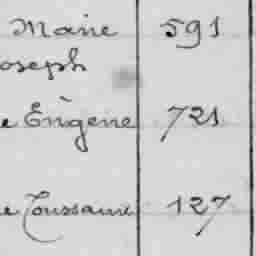 Marie 591
oseph
e Eugène 721
e Toussaint 127